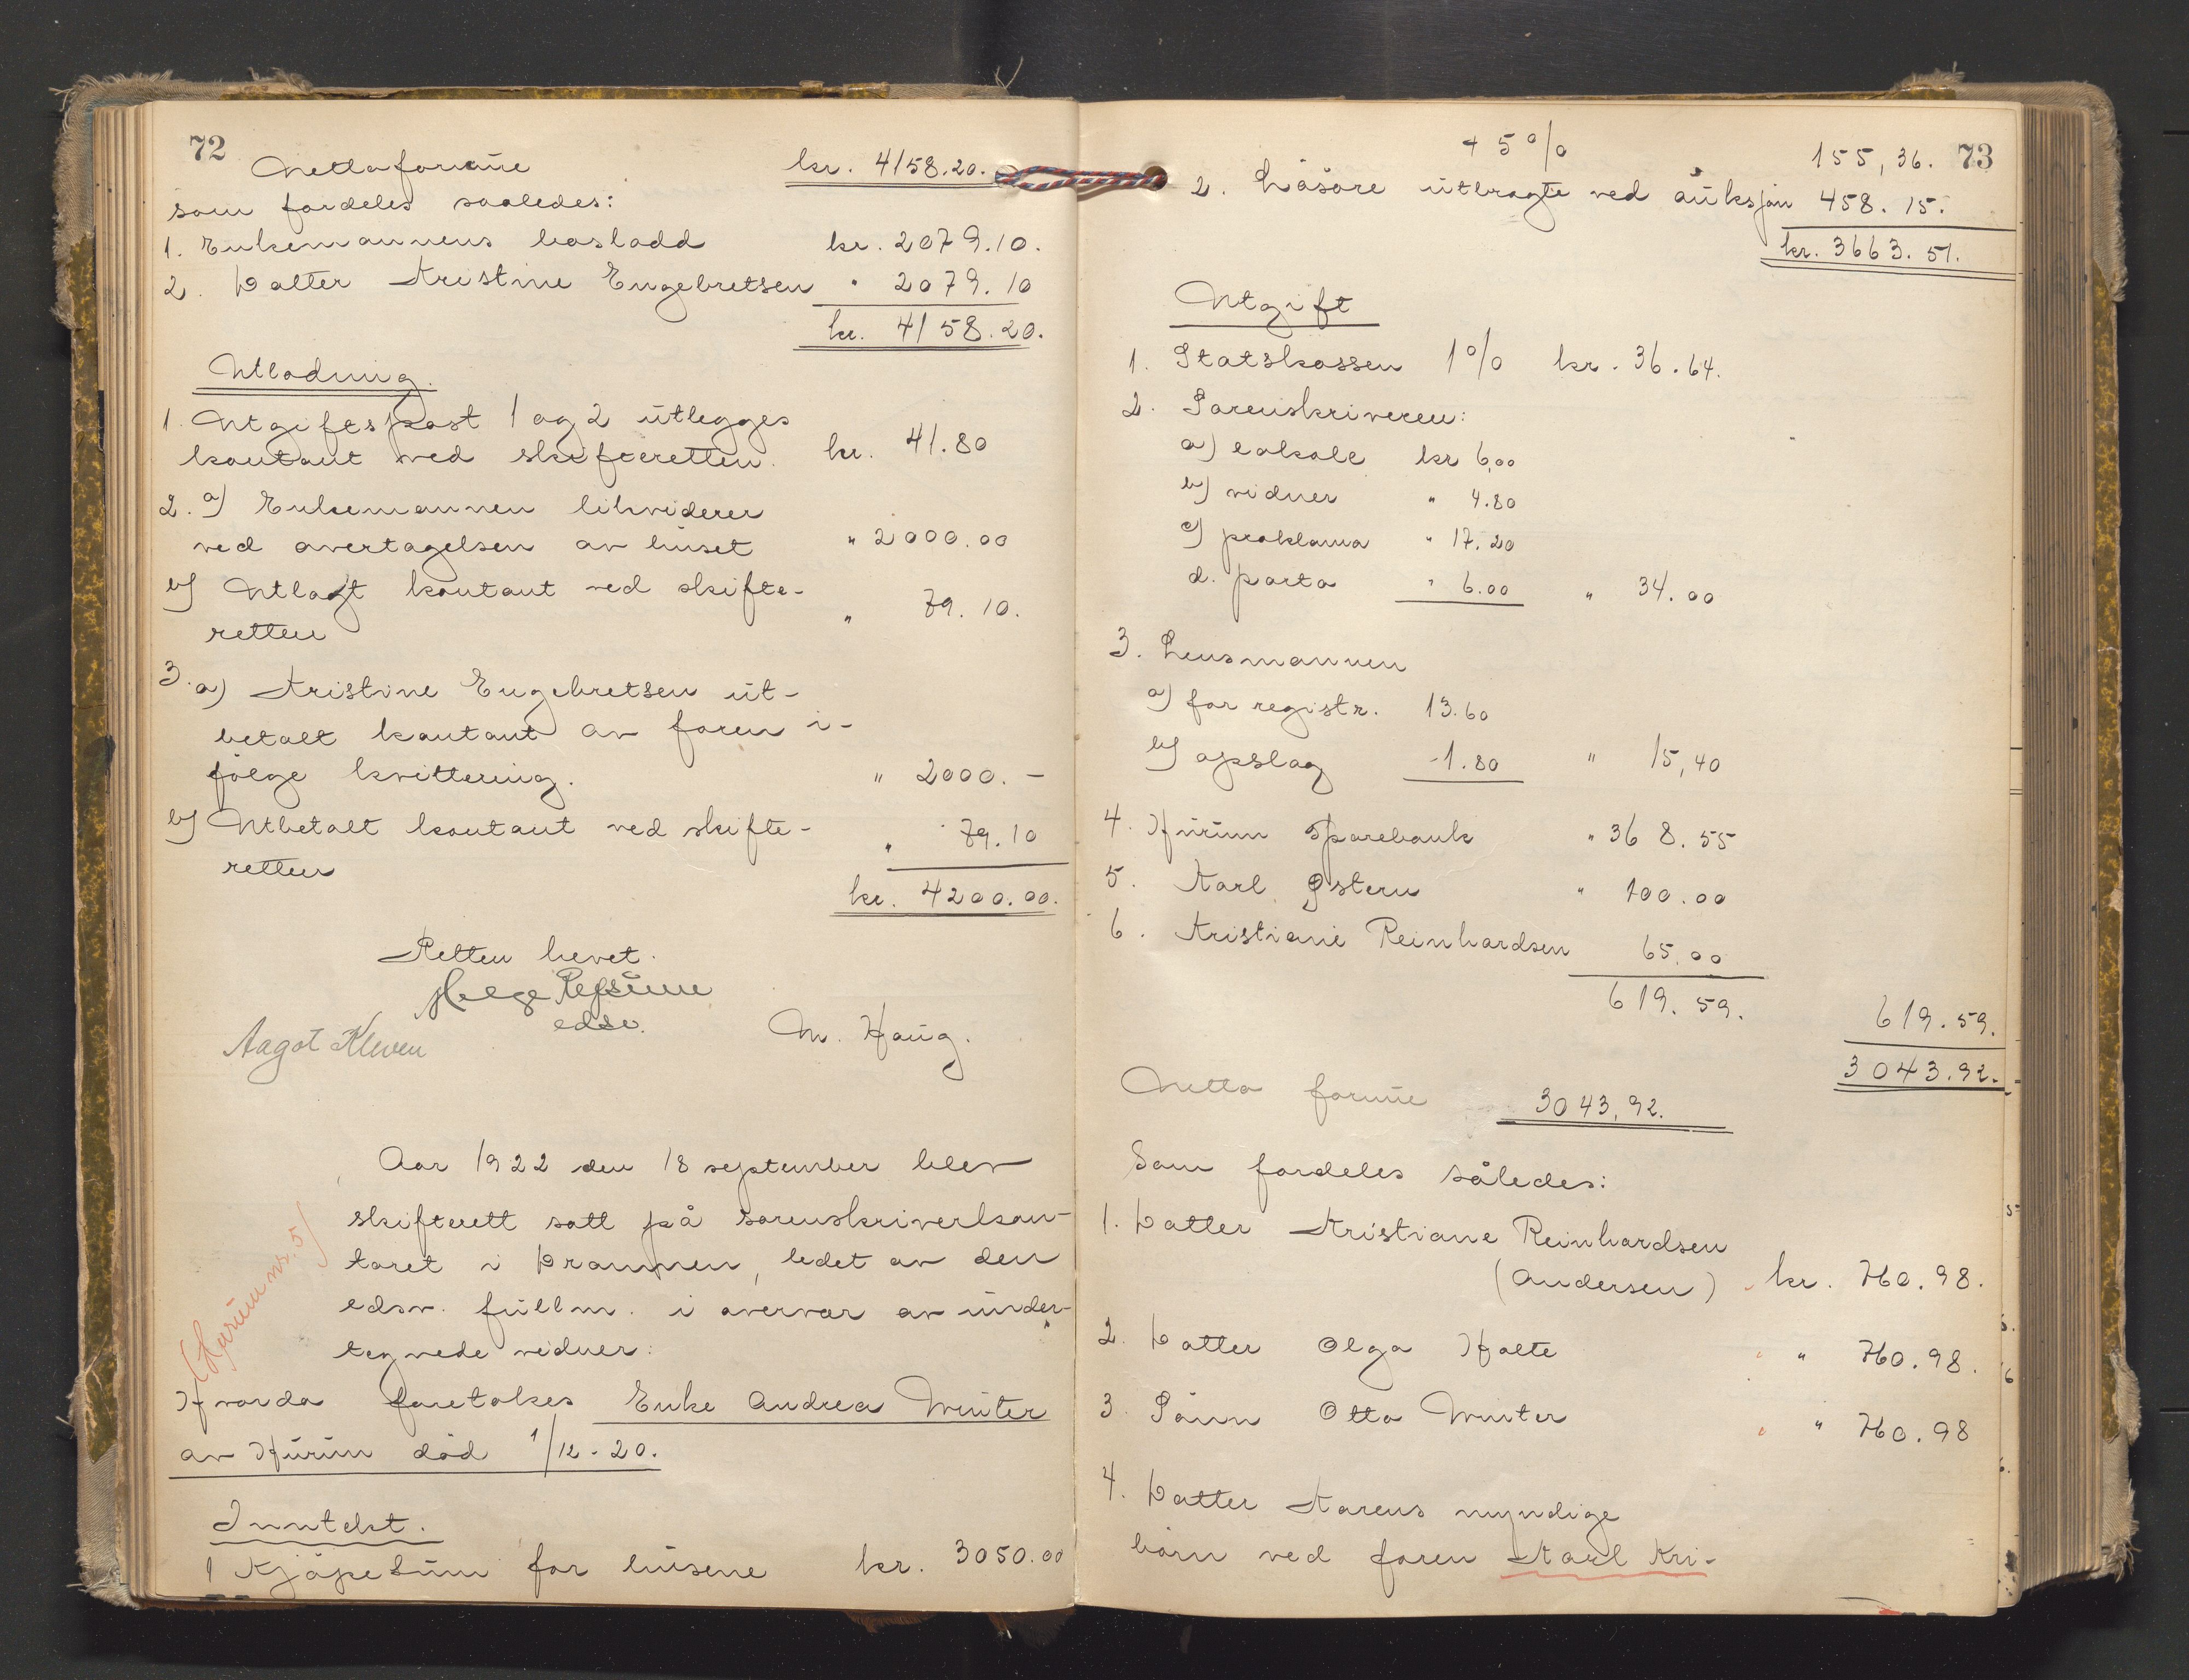 72
Nettoformue kr. 4158.20.
som fordeles saaledes:
1. Enkemannens boslodd kr. 2079.10.
2. Datter Kristine Engebretsen " 2079.10
kr. 4158.20.
Utlodning.
1. Utgiftspost 1 og 2 utlegges
kontant ved skifteretten. kr. 41.80
2. a) Enkemannen likviderer
ved overtagelsen av huset " 2000.00
b) Utlagt kontant ved skifte-
retten " 79.10.
3. a) Kristine Engebretsen ut-
betalt kontant av faren i-
følge kvittering. " 2000.-
b) Utbetalt kontant ved skifte-
retten " 79.10
kr. 4200.00.
Retten hevet.
Helge Refsum
edsv.
Aagot Kleven M. Haug.
Aar 1922 den 18 september blev
skifterett satt på sorenskriverkon-
toret i Drammen, ledet av den
edsv. fullm. i overvær av under-
tegnede vidner:
(Hurum nr. 5)
Hvorda foretokes Enke Andrea Winter
av Hurum død 1/12-20.
Inntekt.
1 Kjøpesum for husene kr. 3050.00
73
+ 5% 155,36.
2. Løsøre utbragte ved auksjon 458.15.
kr. 3663.51.
Utgift
1. Statskassen 1% kr. 36.64.
2. Sorenskriveren:
a) lokale kr 6,00
b) vidner " 4.80
c) proklama " 17.20
d. porto " 6.00 " 34.00
3. Lensmannen
a) for registr. 13.60
b) opslag -1.80 " 15,40
4. Hurum Sparebank " 368.55
5. Karl Østern " 100.00
6. Kristiane Reinhardsen 65,00
619.59. 619.59.
3043.92.
Netto formue 3043,92.
Som fordeles således:
1. Datter Kristiane Reinhardsen
(Andersen) kr. 760.98.
2. Datter Olga Holte " 760.98.
3 Sønn Otto Winter " 760.98
4. Datter Karens myndige
børn ved faren Karl Kri-